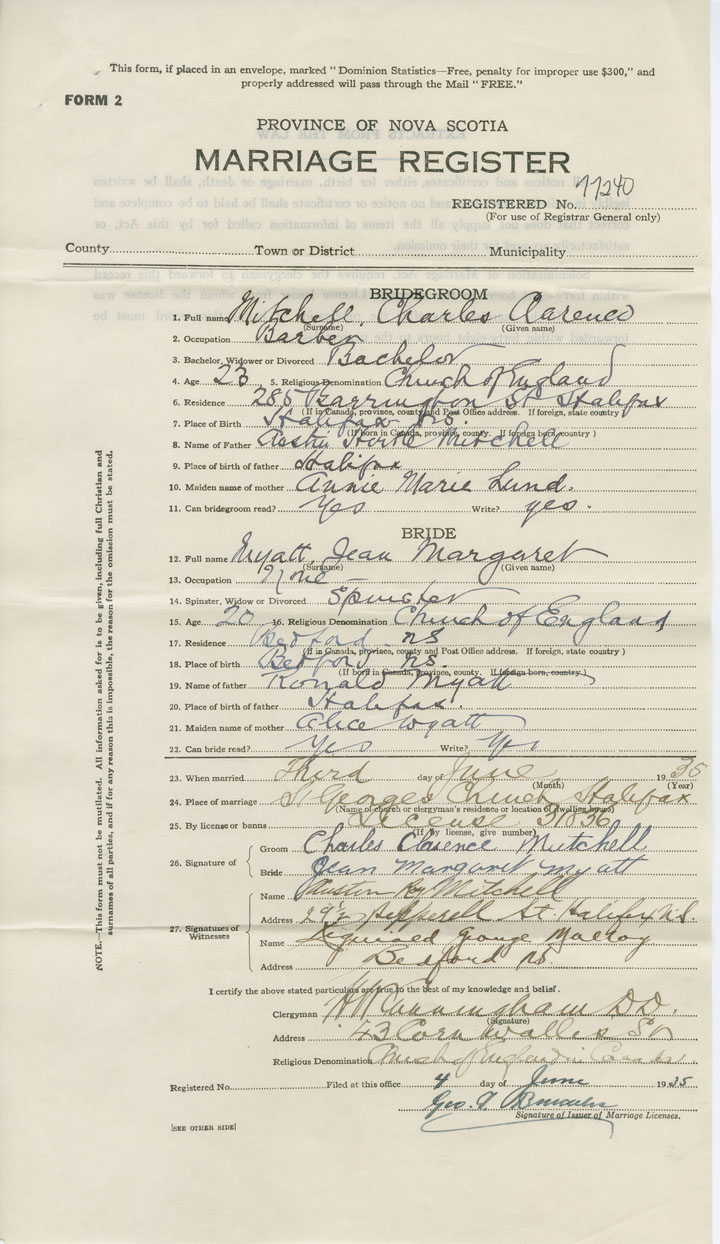 This form, if placed in an envelope, marked " Dominion Statistics—Free, penalty for improper use $300," and
properly addressed will pass through the Mail " FREE."
FORM 2
PROVINCE OF NOVA SCOTIA
MARRIAGE REGISTER
REGISTERED No. 11240
(For use of Registrar General only)
County Town or District Municipality
BRIDEGROOM
1. Full name Mitchell, Charles Clarence
(Surname) (Given name)
2. Occupation Barber
3. Bachelor, Widower or Divorced Bachelor
4. Age 23 5. Religious Denomination Church of England
6. Residence 285 Barrington St Halifax
(If in Canada, province, county and Post Office address. If foreign, state country )
7. Place of Birth Halifax NS.
(If born in Canada, province, county. If foreign born, country )
8. Name of Father Mitchell
9. Place of birth of father Halifax
10. Maiden name of mother Annie Marie Lund.
11. Can bridegroom read? Yes Write? yes.
BRIDE
12. Full name Myatt, Jean Margaret
(Surname) (Given name)
13. Occupation None
14. Spinster, Widow or Divorced Spinster
15. Age 20 16. Religious Denomination Church of England
17. Residence Bedford. NS
(If in Canada, province, county and Post Office address. If foreign, state country )
18. Place of birth Bedford NS.
(If born in Canada, province, county. If foreign born, country )
19. Name of father Ronald Myatt
20. Place of birth of father Halifax.
21. Maiden name of mother Alice Wyatt
22. Can bride read? Yes Write? Yes
23. When married Third day of June 1935
(Month) (Year)
24. Place of marriage St Georges Church Halifax
(Name of church or clergyman's residence or location of dwelling house)
25. By license or banns License 31836
(If by license, give number)
26. Signature of Groom Charles Clarence Mitchell
Bride Jean Margaret Myatt
27. Signatures of Witnesses
Name Austin Roy Mitchell
Address 29½ Pepperell St Halifax N.S.
Name George
Address Bedford NS.
I certify the above stated particulars are true to the best of my knowledge and belief.
Clergyman H W Cunningham DD.
(Signature)
Address 43 Cornwallis St
Religious Denomination Church of England in Canada
Registered No. Filed at this office 4 day of June 1935
Geo. 
Signature of Issuer of Marriage Licenses.
[SEE OTHER SIDE]
NOTE.—This form must not be mutilated. All information asked for is to be given, including full Christian and
surnames of all parties, and if for any reason this is impossible, the reason for the omission must be stated.